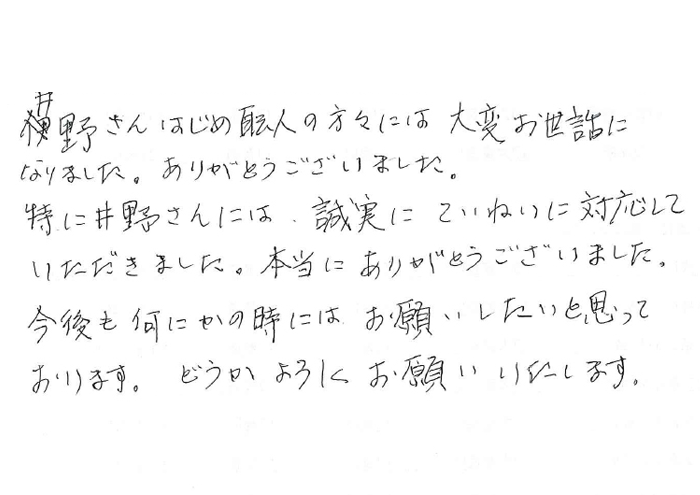 井野さんはじめ職人の方々には大変お世話に
なりました。ありがとうございました。
特に井野さんには、誠実にていねいに対応して
いただきました。本当にありがとうございました。
今後も何にかの時にはお願いしたいと思って
おります。どうかよろしくお願いいたします。